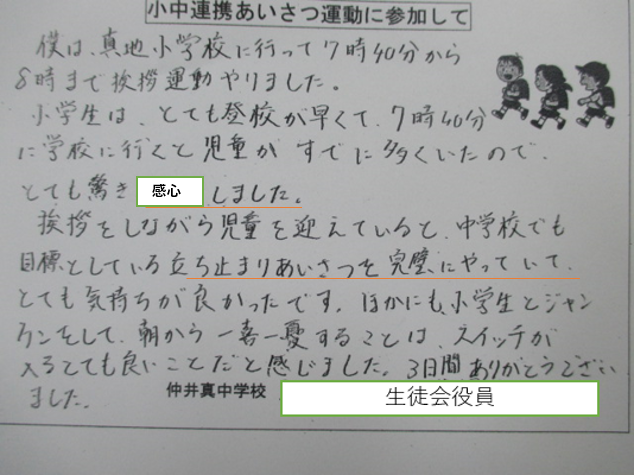 小中連携あいさつ運動に参加して
僕は、真地小学校に行って7時40分から
8時まで挨拶運動やりました。
小学生は、とても登校が早くて、7時40分
に学校に行くと児童がすでに多くいたので、
とても驚き感心しました。
挨拶をしながら児童を迎えていると、中学校でも
目標としている立ち止まりあいさつを完璧にやっていて、
とても気持ちが良かったです。ほかにも、小学生とジャン
ケンをして、朝から一喜一憂することは、スイッチが
入るとても良いことだと感じました。3日間ありがとうござい
ました。
仲井真中学校 生徒会役員